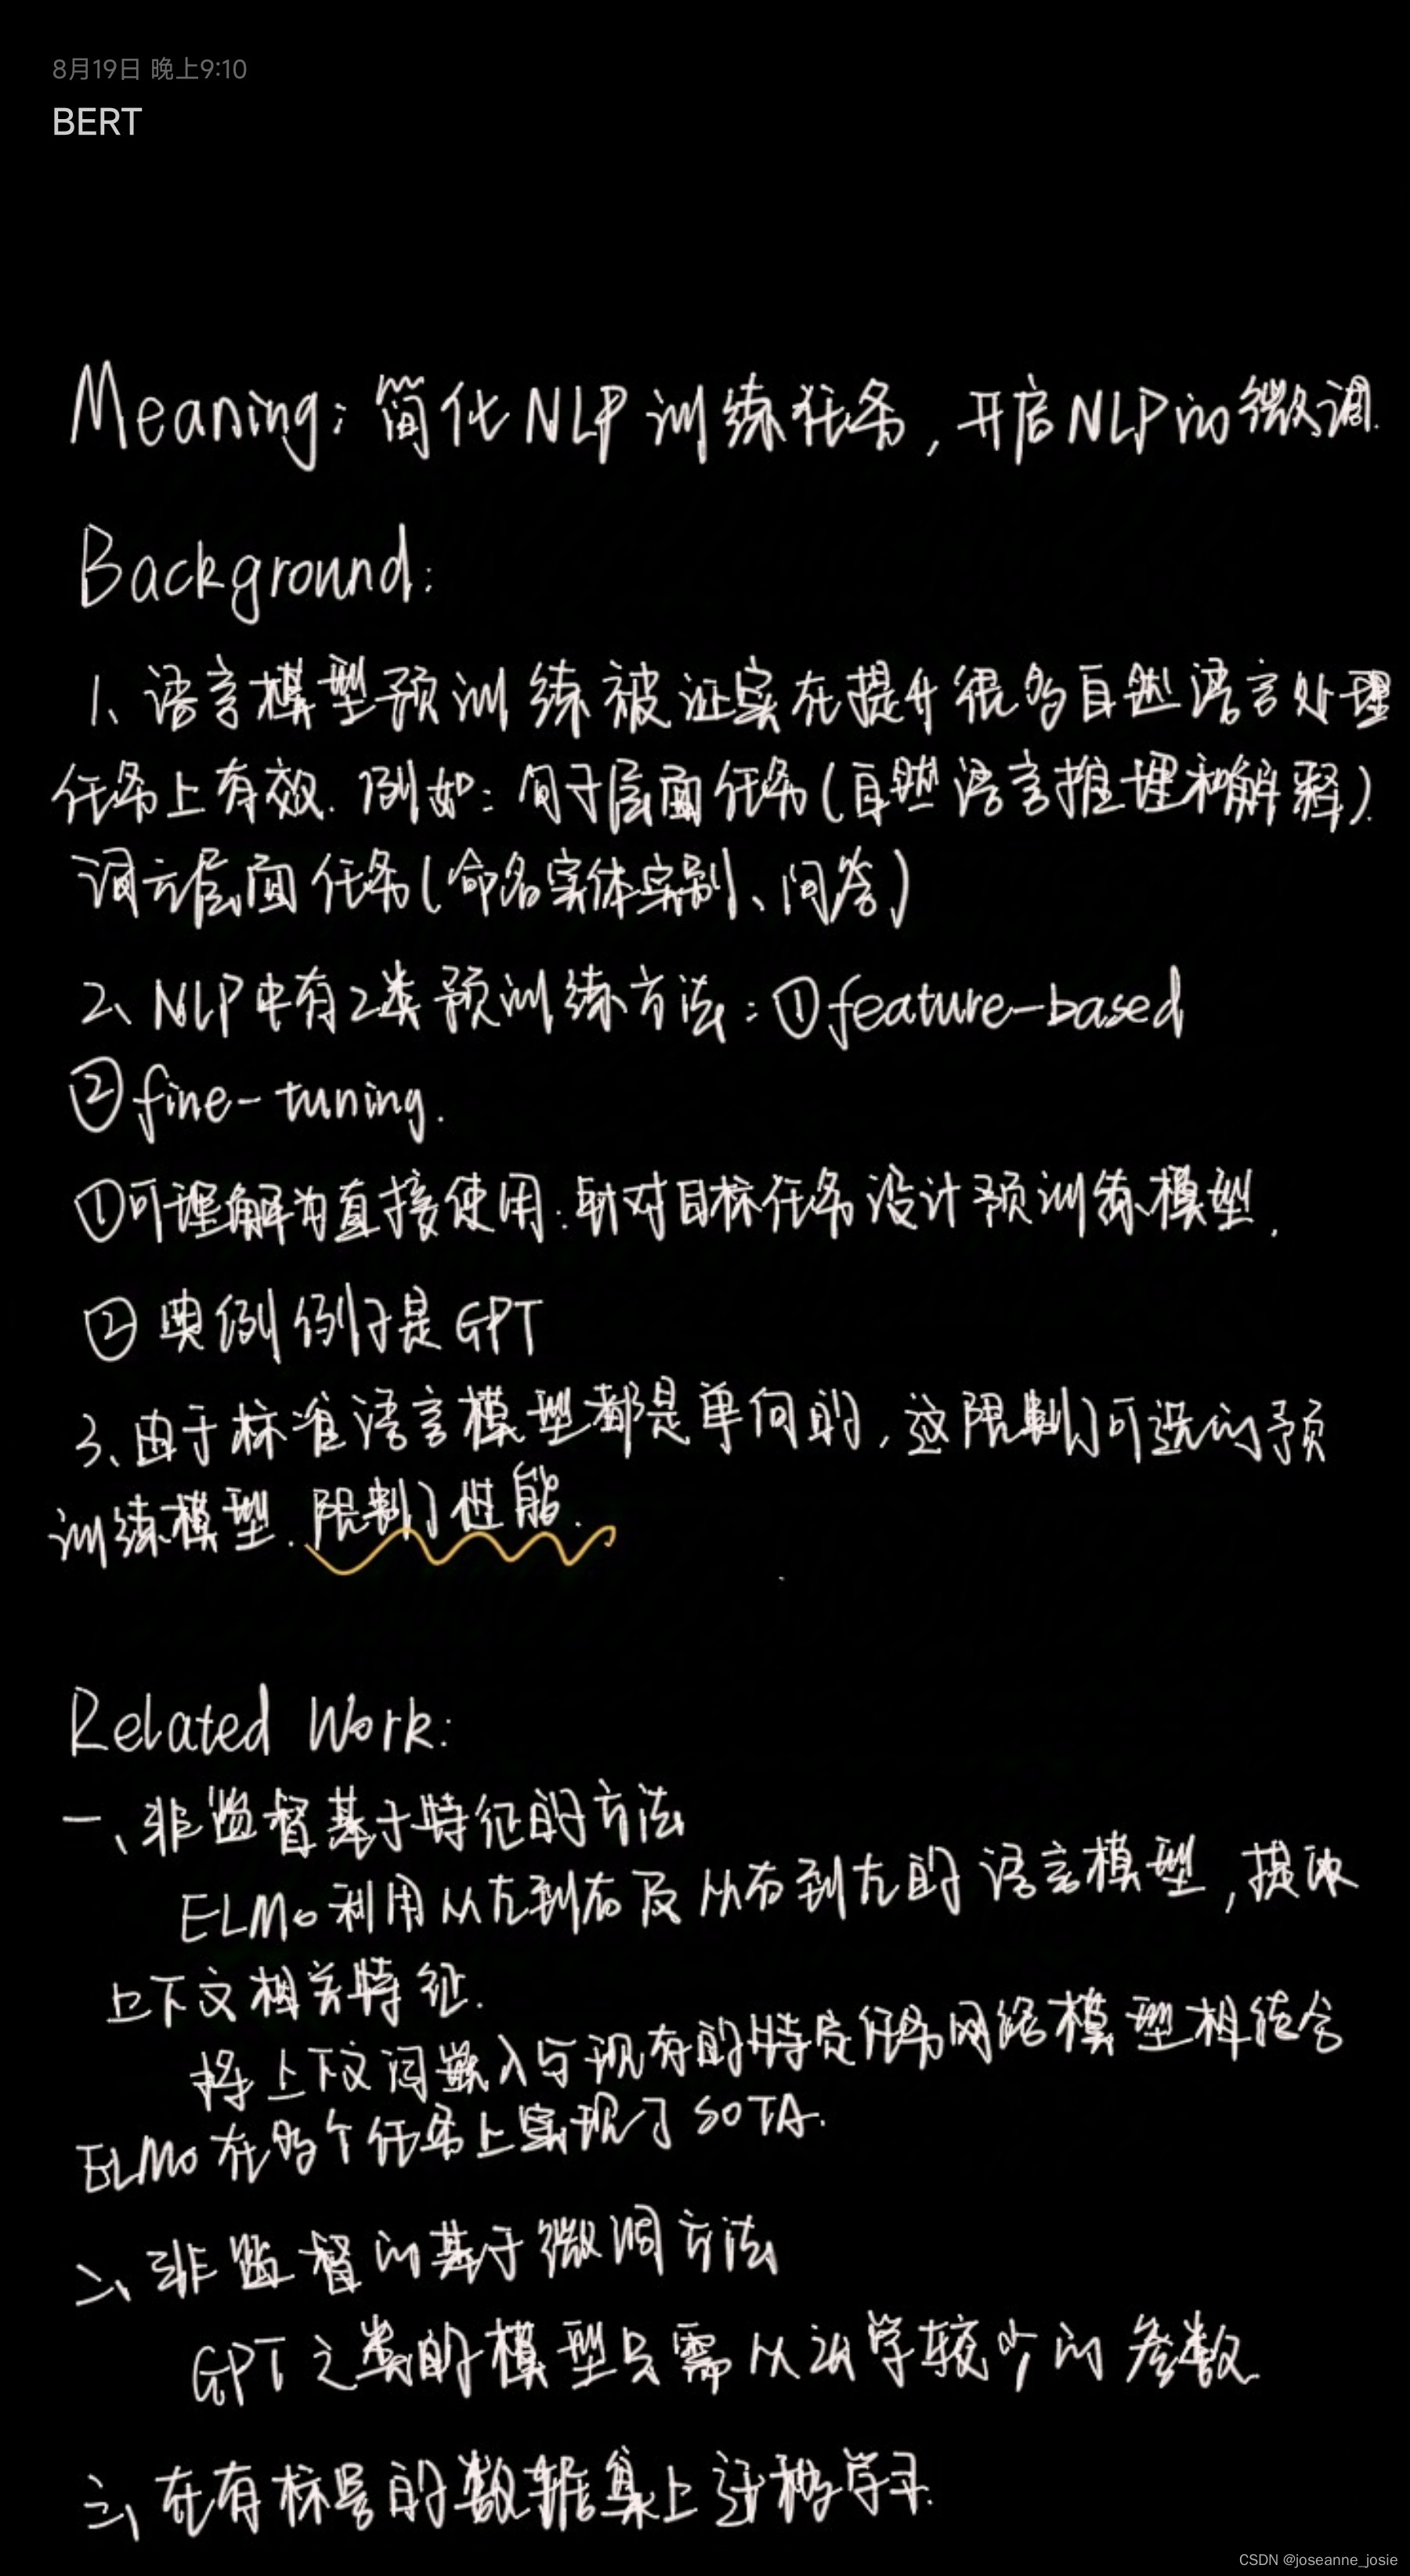 8月19日 晚上9:10
BERT
Meaning: 简化NLP训练任务, 开启NLP的微调.
Background:
1、语言模型预训练被证实在提升很多自然语言处理
任务上有效. 例如: 句子层面任务(自然语言推理和解释).
词元层面任务(命名实体实别、问答)
2、NLP中有2类预训练方法: ①feature-based
②fine-tuning.
①可理解为直接使用: 针对目标任务设计预训练模型.
②典例例子是GPT
3、由于标准语言模型都是单向的, 这限制了可选的预
训练模型. 限制了性能.
Related Work:
一、非监督基于特征的方法
ELMo利用从左到右及从右到左的语言模型, 提取
上下文相关特征.
将上下文词嵌入与现有的特定任务网络模型相结合
ELMo在多个任务上实现了SOTA.
二、非监督的基于微调方法
GPT之类的模型只需从头学较少的参数
三、在有标号的数据集上迁移学习.
CSDN @joseanne_josie